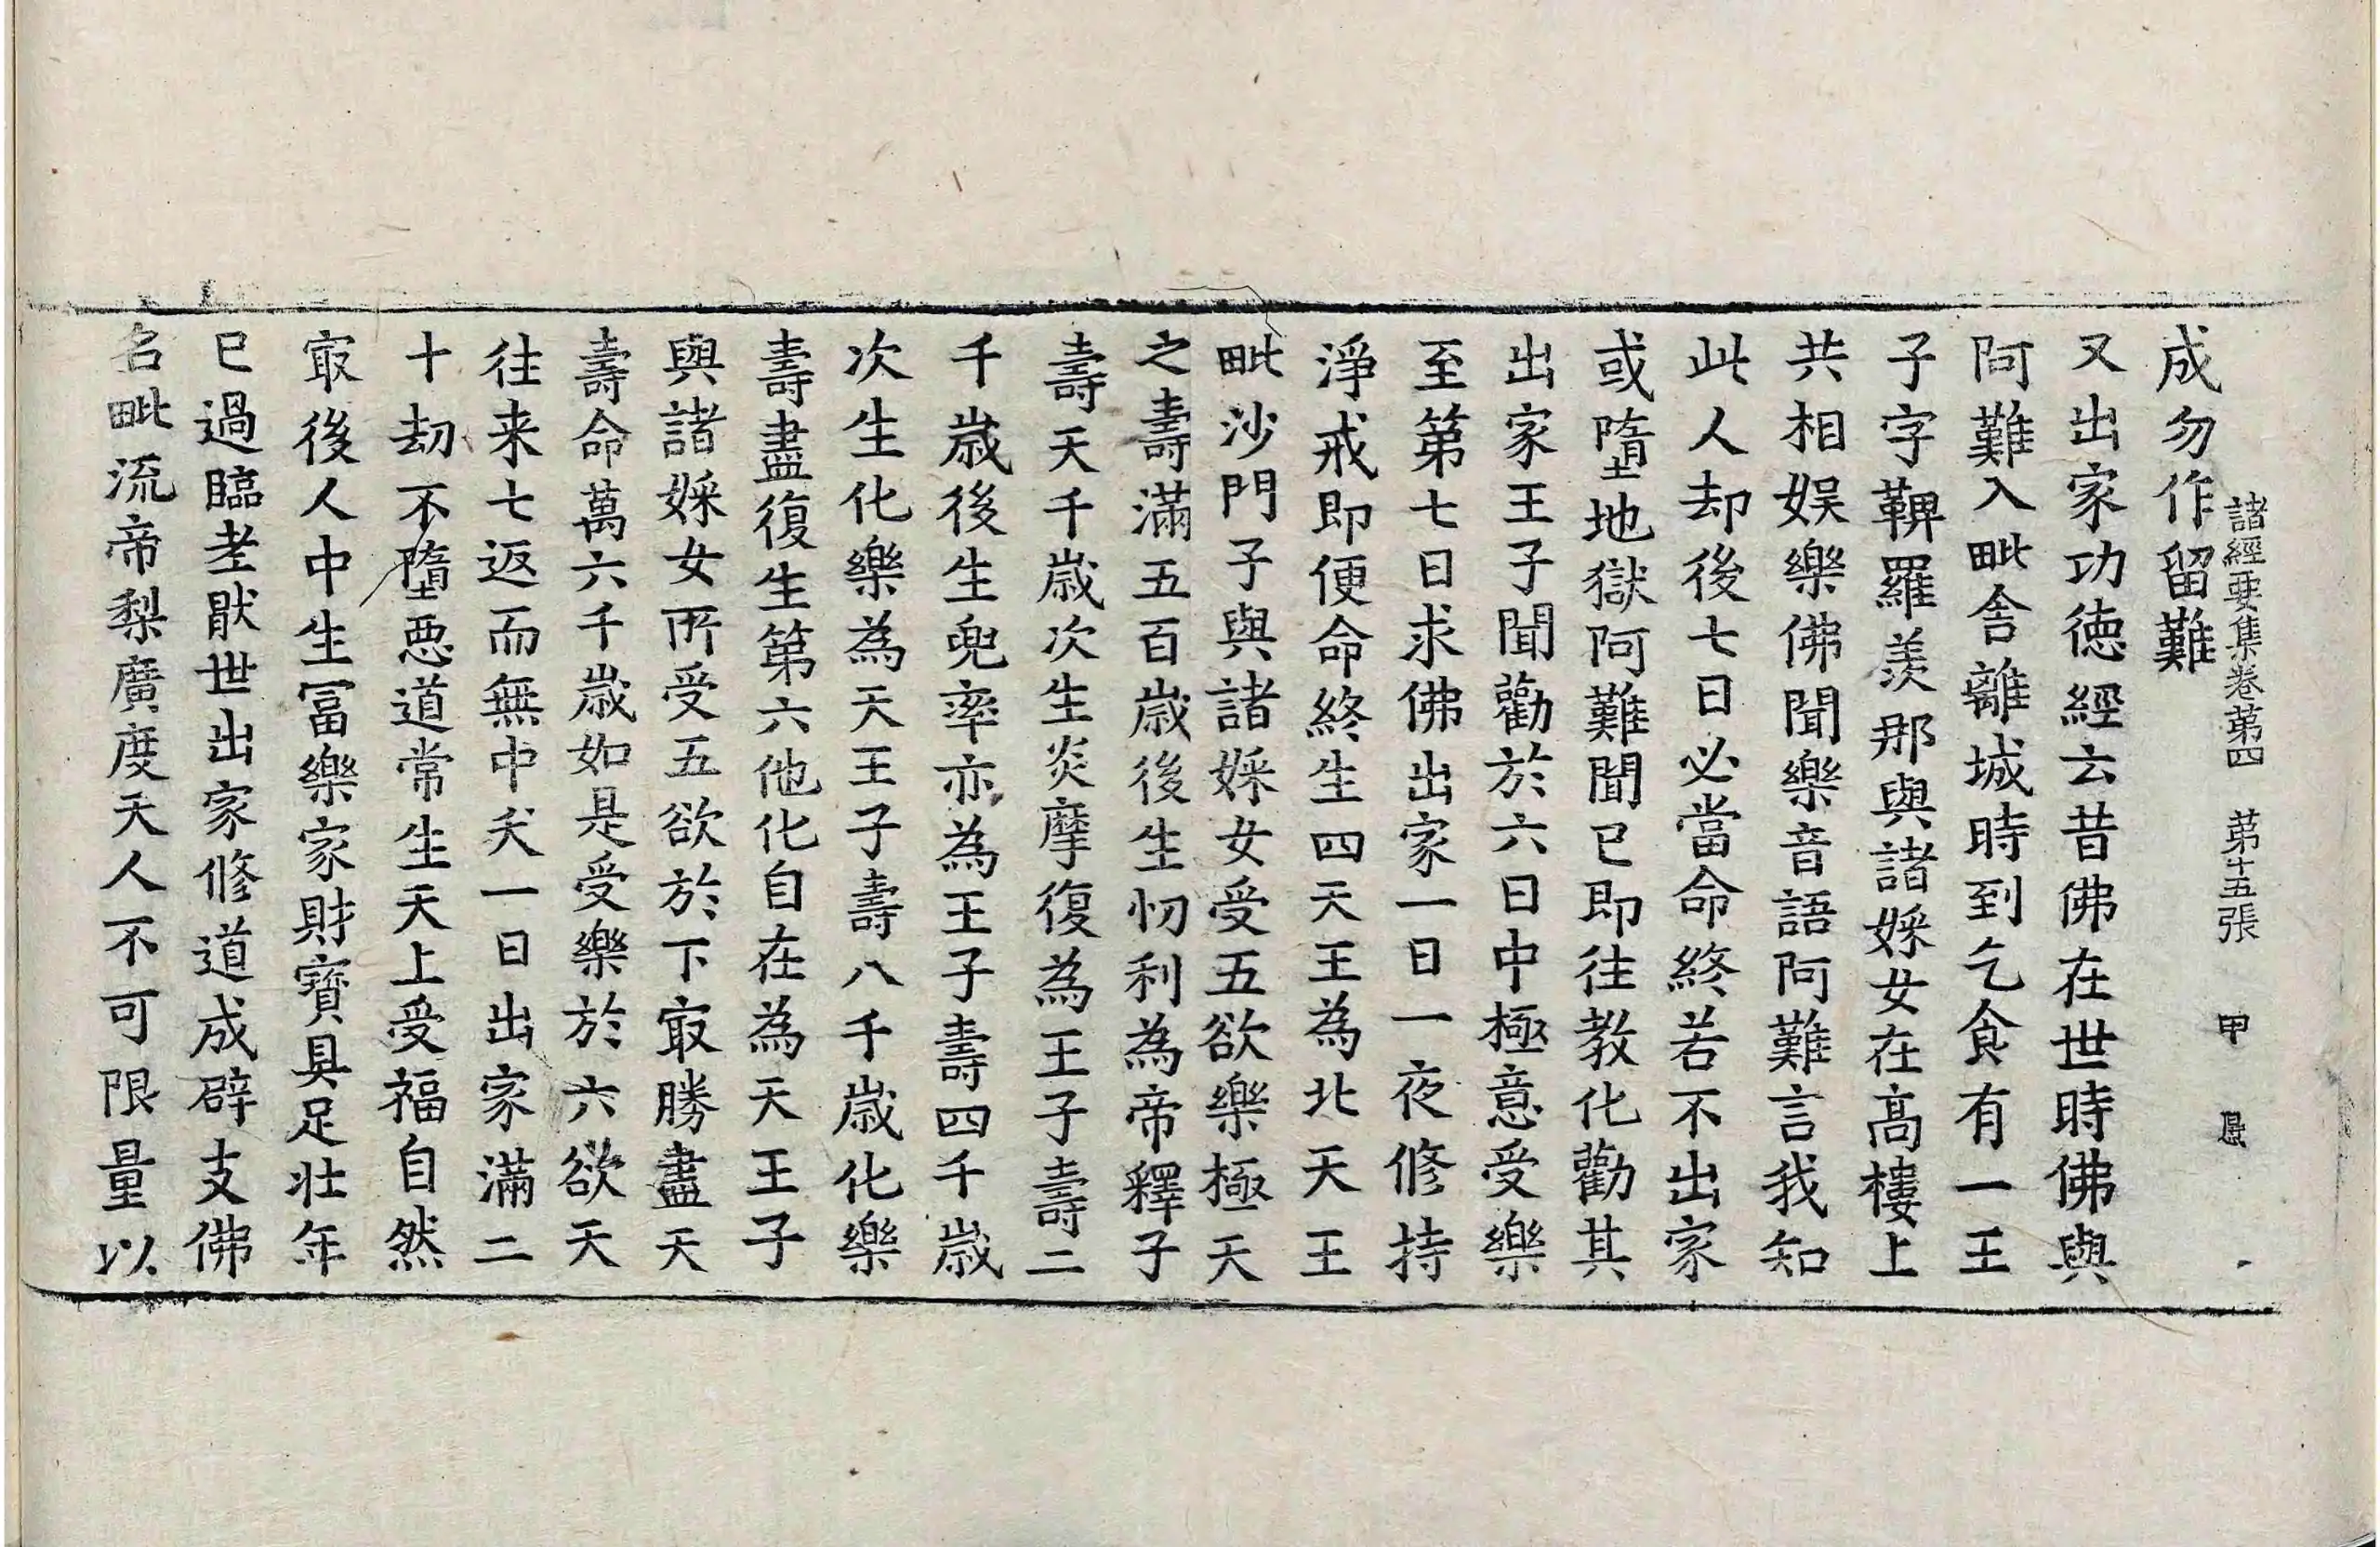 諸經要集卷苐四 苐十五張 甲
成勿作留難
又出家功徳經云昔佛在世時佛與
阿難入毗舍離城時到乞食有一王
子字鞞羅羡那與諸婇女在髙樓上
共相娱樂佛聞樂音語阿難言我知
此人却後七日必當命終若不出家
或墮地獄阿難聞已即往教化勸其
出家王子聞勸於六日中極意受樂
至第七日求佛出家一日一夜修持
淨戒即便命終生四天王為北天王
毗沙門子與諸婇女受五欲樂極天
之壽滿五百歳後生忉利為帝釋子
壽天千歳次生炎摩復為王子壽二
千歳後生兜率亦為王子壽四千歳
次生化樂為天王子壽八千歳化樂
壽盡復生第六他化自在為天王子
與諸婇女所受五欲於下㝡勝盡天
壽命萬六千歳如是受樂於六欲天
往来七返而無中夭一日出家滿二
十劫不墮惡道常生天上受福自然
㝡後人中生冨樂家財寶具足壯年
已過臨老猒世出家修道成辟支佛
名毗流帝梨廣度天人不可限量以